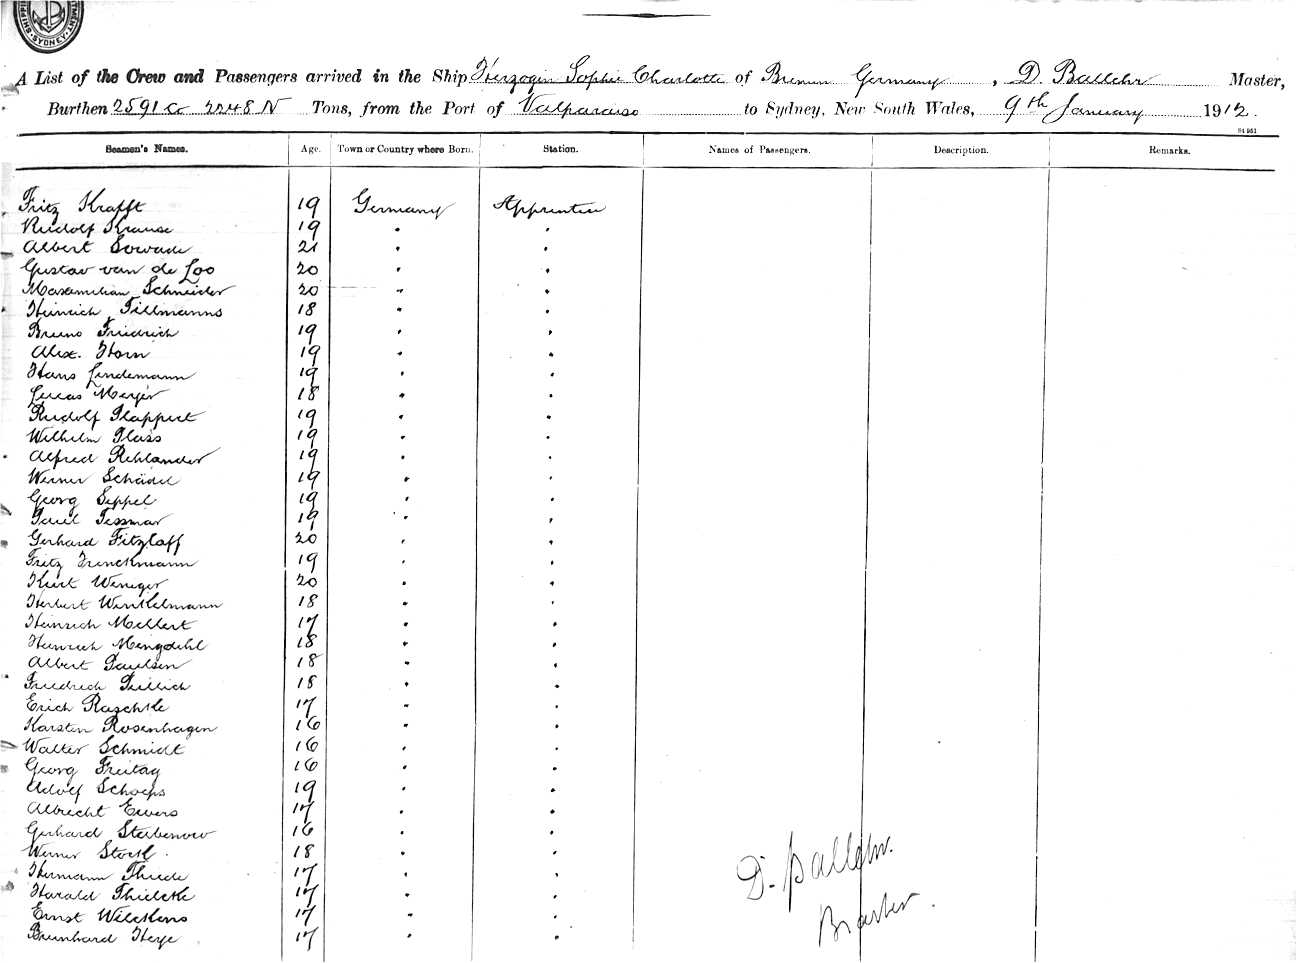 SHIPPING SYDNEY
A List of the Crew and Passengers arrived in the Ship Herzogin Sophie Charlotte of Bremen Germany, D. Ballehr Master,
Burthen 2591 G 2248 N Tons, from the Port of Valparaiso to Sydney, New South Wales, 9th January 1912.
Seamen's Names. Age. Town or Country where Born. Station. Names of Passengers. Description. Remarks.
Fritz Krafft 19 Germany Apprentice
Rudolf Krause 19 " "
Albert Sowade 21 " "
Gustav van de Loo 20 " "
Maxamilian Schneider 20 " "
Heinrich Tillmanns 18 " "
Bruno Friedrich 19 " "
Alex. Horn 19 " "
Hans Lindemann 19 " "
Lucas Meyer 18 " "
Rudolf Plappert 19 " "
Wilhelm Plass 19 " "
Alfred Rehlander 19 " "
Werner Schädel 19 " "
Georg Seppel 19 " "
Paul Tessmar 19 " "
Gerhard Fitzlaff 20 " "
Fritz Trenckmann 19 " "
Kurt Weniger 20 " "
Herbert Winkelmann 18 " "
Heinrich Mellert 17 " "
Heinrich Mengdehl 18 " "
Albert Paulsen 18 " "
Friedrich Pillich 18 " "
Erich Raschke 17 " "
Karsten Rosenhagen 16 " "
Walter Schmidt 16 " "
Georg Freitag 16 " "
Adolf Schoeps 19 " "
Albrecht Ewers 17 " "
Gerhard Stubenow 16 " "
Werner Stock 18 " "
Hermann Thiede 17 " "
Harald Thielcke 17 " "
Ernst Wilckens 17 " "
Bernhard Heye 17 " "
D. Ballehr.
Master.